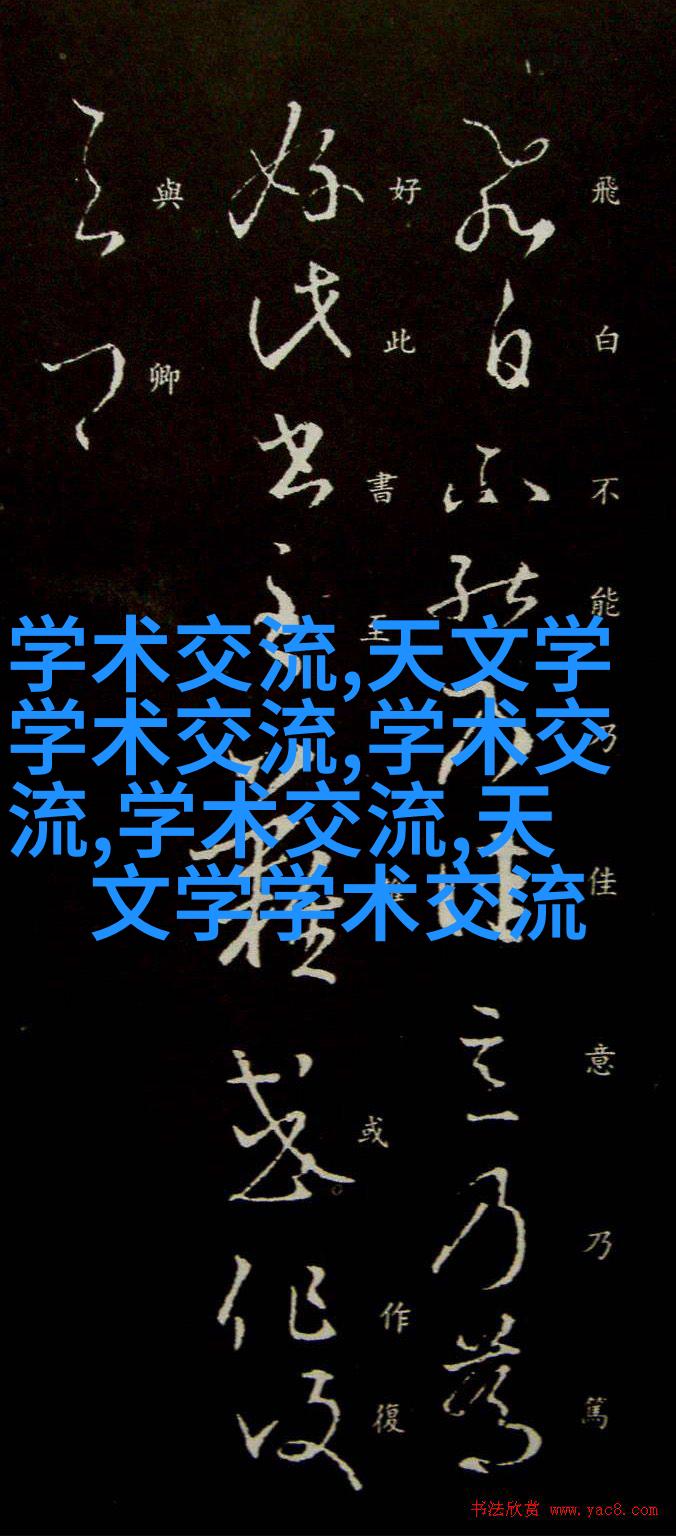 飛白不能乃佳意乃篤
好此書至難或作復
與卿
学术交流,天文学
学术交流,学术交
流,学术交流,天
文学学术交流
书法欣赏 www.yac8.com